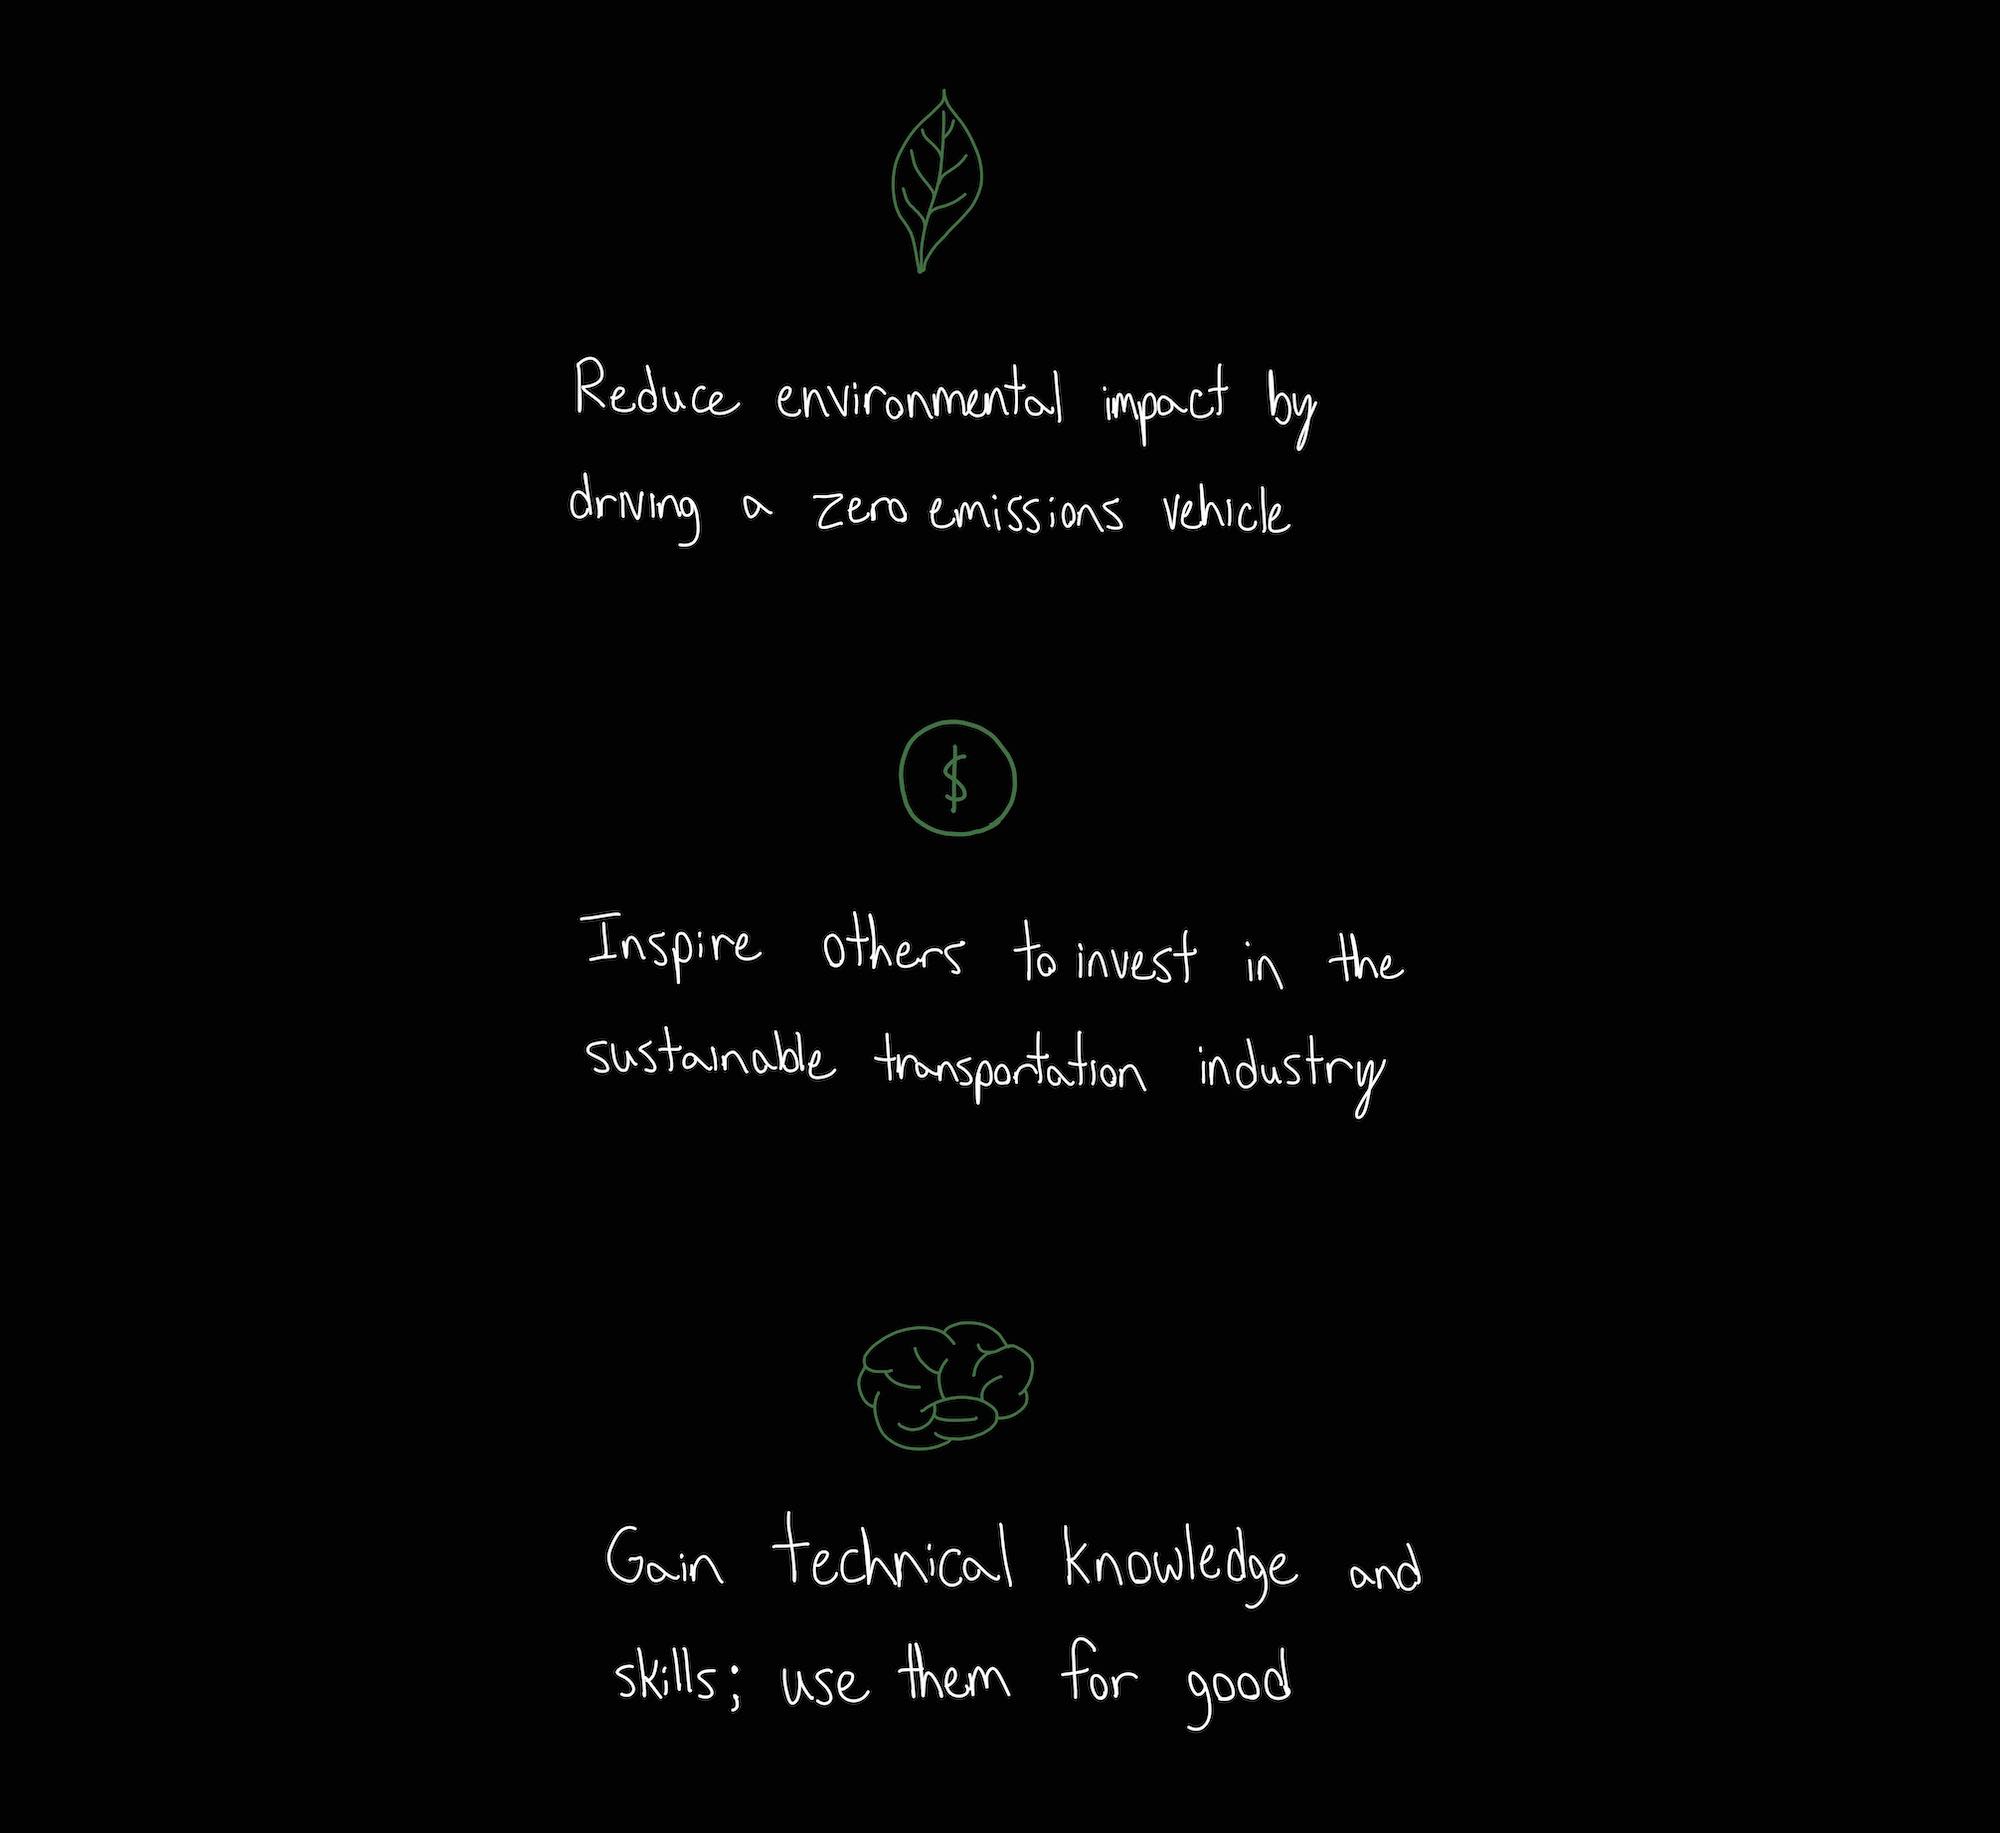 Reduce environmental impact by
driving a zero emissions vehicle
$
Inspire others to invest in the
sustainable transportation industry
Gain technical knowledge and
skills; use them for good